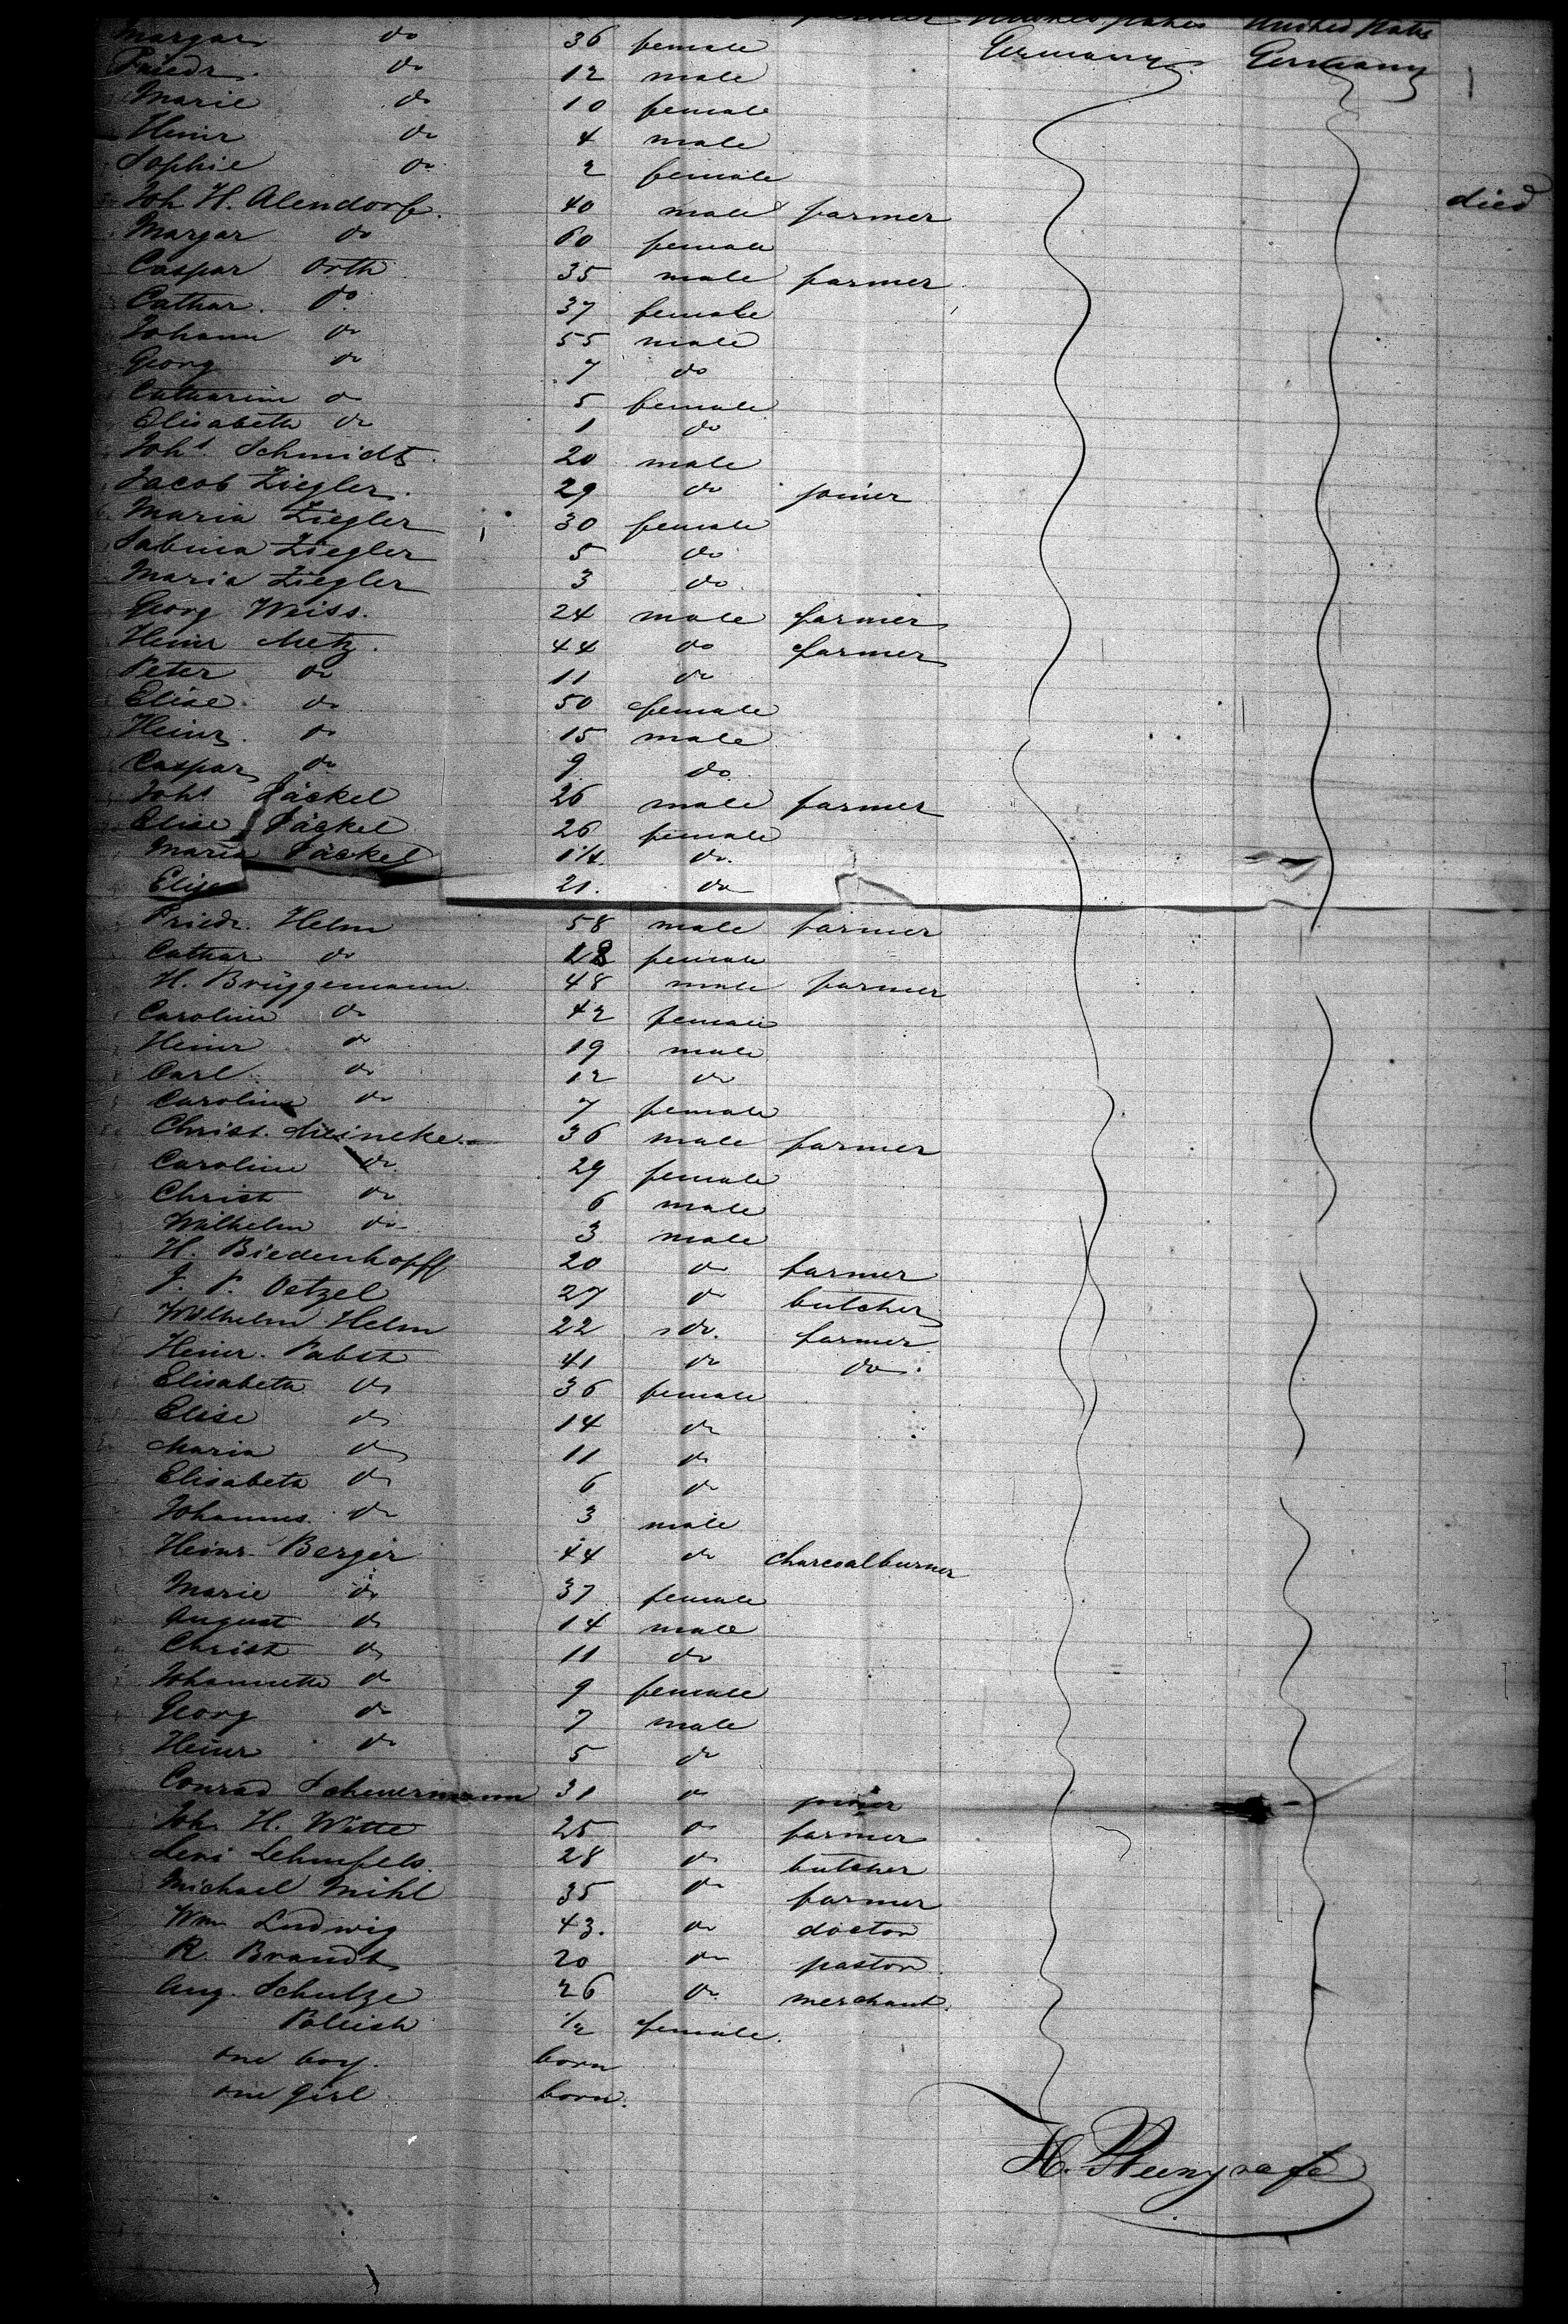 farmer United States United States
Margar do 36 female Germany Germany
Friedr. do 12 male
Marie do 10 female
Heinr do 4 male
Sophie do 2 female died
Joh H. Alendorf. 40 male farmer
Margar do 60 female
Caspar Orth 35 male farmer
Cathar. do 37 female
Johann do 55 male
Georg do 7 do
Catharine do 5 female
Elisabeth do 1 do
Johs. Schmidt 20 male
Jacob Ziegler. 29 do joiner
Maria Ziegler 30 female
Sabina Ziegler 5 do
Maria Ziegler 3 do
Georg Weiss. 24 male farmer
Heinr Metz. 44 do farmer
Peter do 11 do
Elise do 50 female
Heinr. do 15 male
Caspar do 9 do
Johs Jäckel 26 male farmer
Elise Jäckel 26 female
Maria Jäckel 1 1/4. do.
Elise 21. do
Friedr. Helm 58 male farmer
Cathar do 18 female
H. Brüggemann 48 male farmer
Caroline do 42 female
Heinr do 19 male
Carl do 12 do
Caroline do 7 female
Christ. Meineke 36 male farmer
Caroline do 29 female
Christ do 6 male
Wilhelm do 3 male
H. Biedenkopff 20 do farmer
J. P. Oetzel 27 do butcher
Wilhelm Helm 22 do. farmer
Heinr. Pabst 41 do do.
Elisabeth do 36 female
Elise do 14 do
Maria do 11 do
Elisabeth do 6 do
Johannes do 3 male
Heinr. Berger 44 do charcoalburner
Marie do 37 female
August do 14 male
Christ do 11 do
Johannette do 9 female
Georg do 7 male
Heinr do 5 do
Conrad Scheuermann 31 do joiner
Joh. H. Witte 25 do farmer
Levi Lehmfeld. 28 do butcher
Michael Mihl 35 do farmer
Wm Ludwig 43. do doctor
R. Brandt 20 do pastor
Aug. Schulze 26 do merchant.
1/2 female.
one boy. born
one girl born.
H.